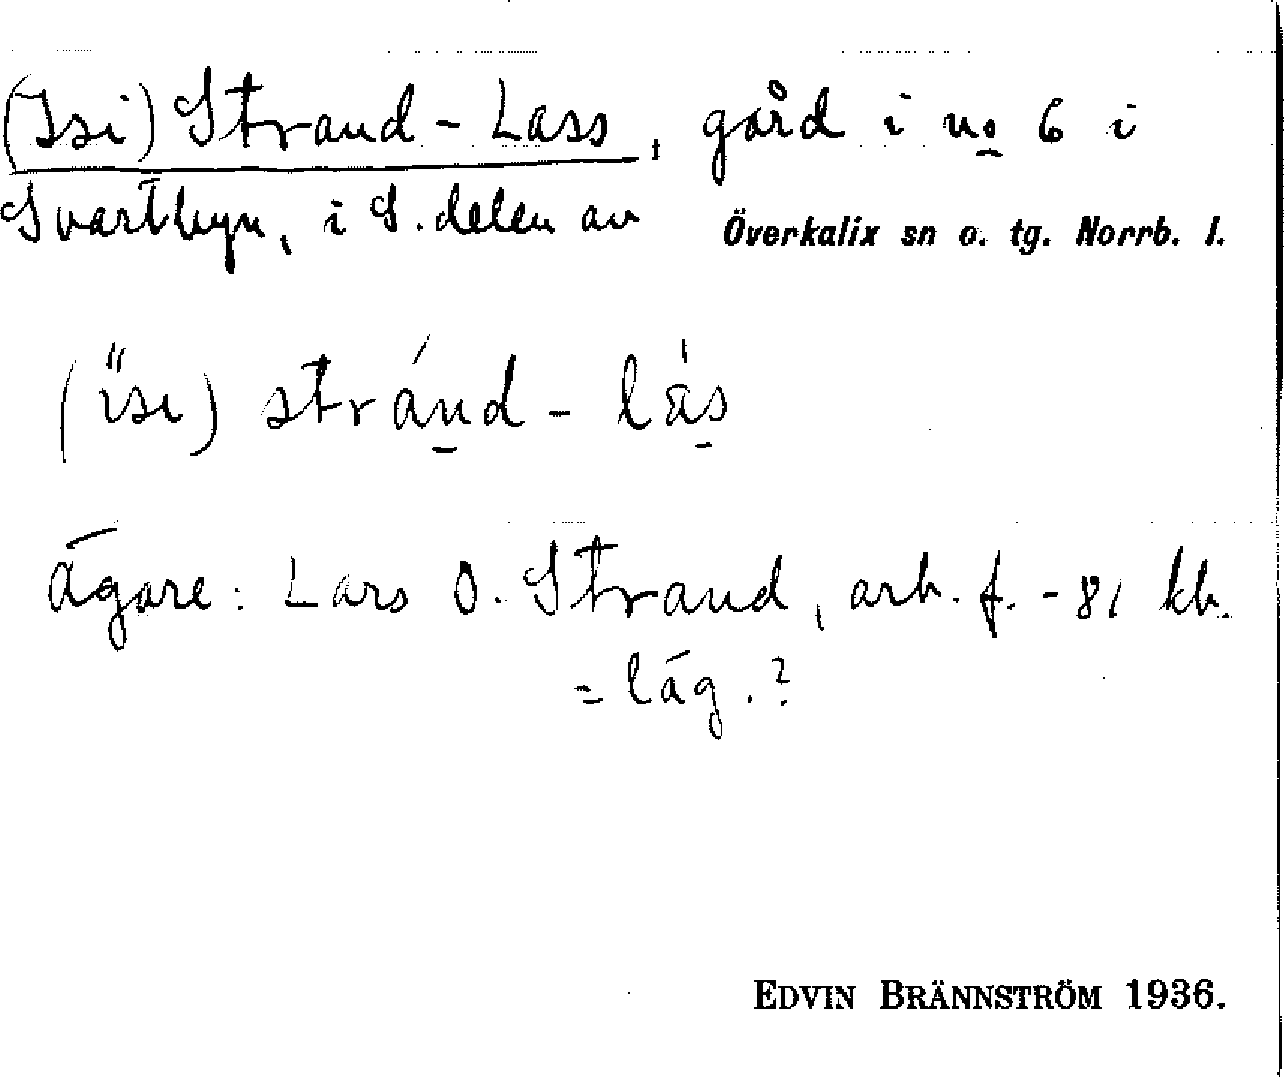 (Isi) Strand-Lass, gård i no 6 i
Svartbyn, i S. delen av Överkalix sn o. tg. Norrb. l.
(ïsı) stránd - lás
ägare: Lars O. Strand, arb. f. -81 kb.
= läg.?
EDVIN BRÄNNSTRÖM 1936.